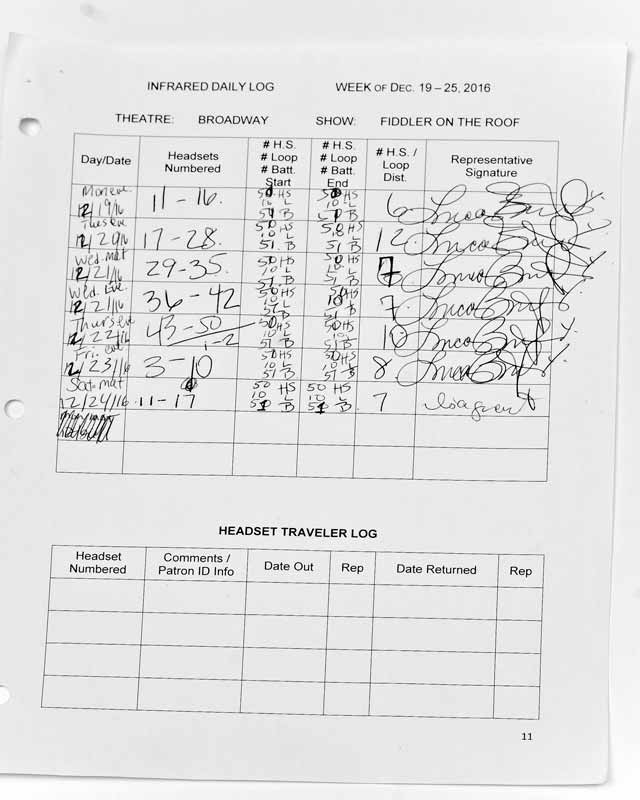 INFRARED DAILY LOG WEEK OF DEC. 19 – 25, 2016
THEATRE: BROADWAY SHOW: FIDDLER ON THE ROOF
Day/Date Headsets Numbered # H.S. # Loop # Batt. Start # H.S. # Loop # Batt. End # H.S. / Loop Dist. Representative Signature
Mon eve 12/19/16 11 - 16. 50 HS 10 L 51 B 50 HS 10 L 51 B 6
Tues eve 12/20/16 17 - 28. 50 HS 10 L 51 B 50 HS 10 L 51 B 12
Wed. mat 12/21/16 29-35. 50 HS 10 L 51 B 50 HS 10 L 51 B 7
Wed. Eve. 12/21/16 36 - 42 50 HS 10 L 51 B 50 HS 10 L 51 B 7
Thurs eve 12/22/16 43-50 1-2 50 HS 10 L 51 B 50 HS 10 L 51 B 10
Fri. eve 12/23/16 3-10 50 HS 10 L 51 B 50 HS 10 L 51 B 8
Sat. mat 12/24/16 11-17 50 HS 10 L 51 B 50 HS 10 L 51 B 7
HEADSET TRAVELER LOG
Headset Numbered Comments / Patron ID Info Date Out Rep Date Returned Rep
11